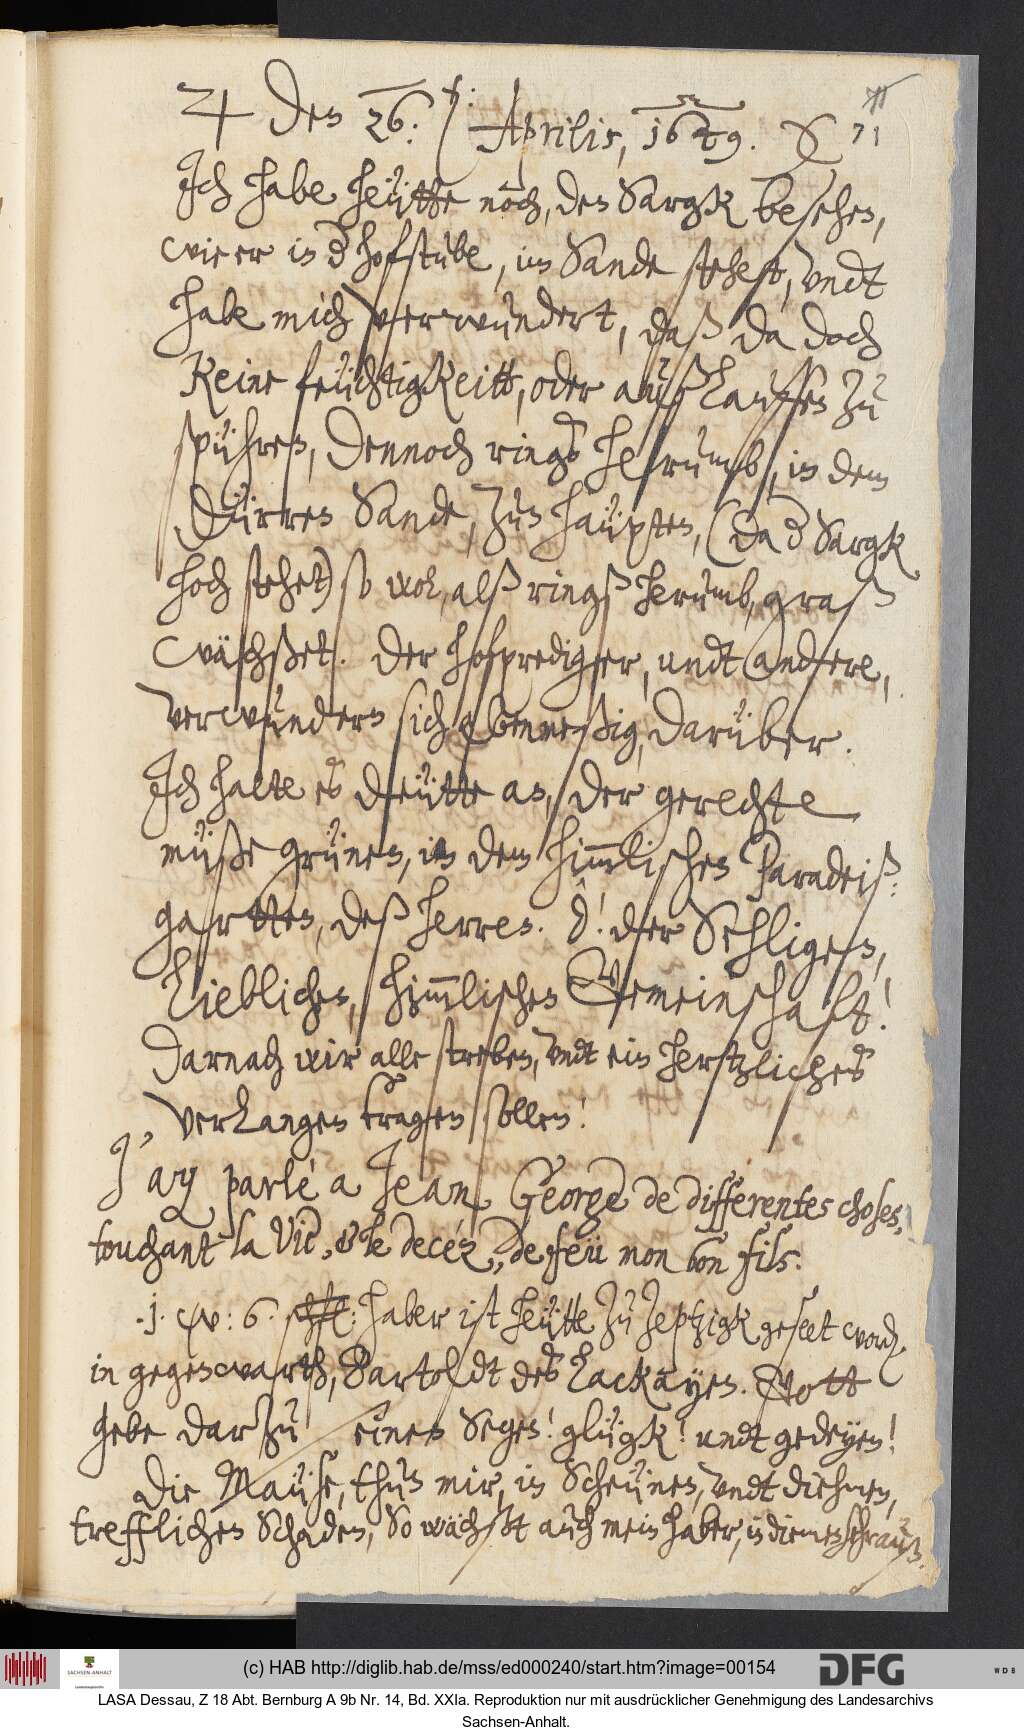 ♃ Den 26. April: Aprilis, 1649.
71
Jch habe heütte noch, den Sargk besehen,
wie er in d hofstube, im Sande stehet, vndt
habe mich verwundert, daß da doch
keine feüchtigkeitt, oder außlauffen zu
spühren, dennoch rings herumb, in dem
Dürren Sande, zun haüpten, (da d Sargk
hoch stehet) so wol, alß ringß herumb, graß
wächßet. Der hofprediger, undt andere,
verwundern sich ebenmeßig, darüber.
Jch halte es deütte an, der gerechte
müße grünen, in dem himmlischen Paradeiß-
gartten, deß Herren. O! der Sehligen,
Lieblichen, himmlischen Gemeinschaft!
Darnach wir alle streben, vndt ein hertzliches
verlangen tragen sollen!
J'ay parlè a Jean George de differentes choses,
touchant la Vie, & le decéz, de feü mon bon fils.
.j. w: 6. schfl: haber ist heütte zu Zeptzigk geseet word
in gegenwarth, Bartoldt des Lackayen. Gott
gebe darzu einen Segen! glügk! undt gedeyen!
Die Maüse, thun mir, in Scheünen, vndt diehmen,
trefflichen Schaden, So wächßt auch mein haber, in diemen herauß.
(c) HAB http://diglib.hab.de/mss/ed000240/start.htm?image=00154
SACHSEN-ANHALT
DFG
WDB
LASA Dessau, Z 18 Abt. Bernburg A 9b Nr. 14, Bd. XXIa. Reproduktion nur mit ausdrücklicher Genehmigung des Landesarchivs
Sachsen-Anhalt.